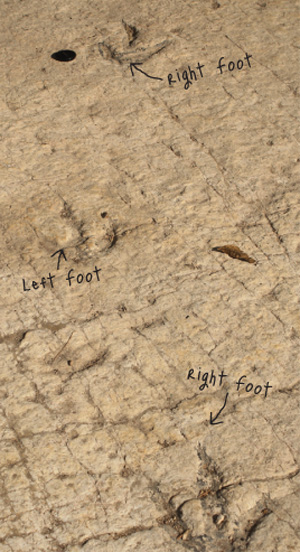 Right foot
Left foot
Right foot